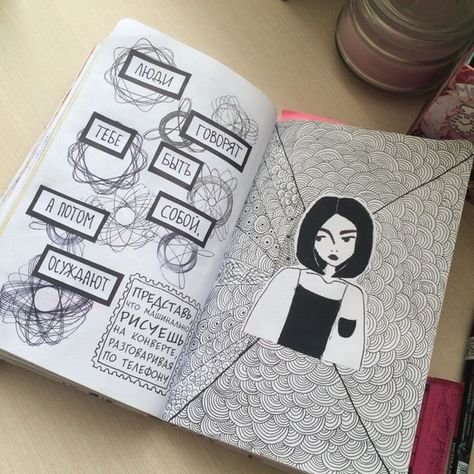 ЛЮДИ
ГОВОРЯТ
ТЕБЕ
БЫТЬ
А ПОТОМ
СОБОЙ,
ОСУЖДАЮТ
ПРЕДСТАВЬ,
ЧТО МАШИНАЛЬНО
РИСУЕШЬ
НА КОНВЕРТЕ,
РАЗГОВАРИВАЯ
ПО ТЕЛЕФОНУ